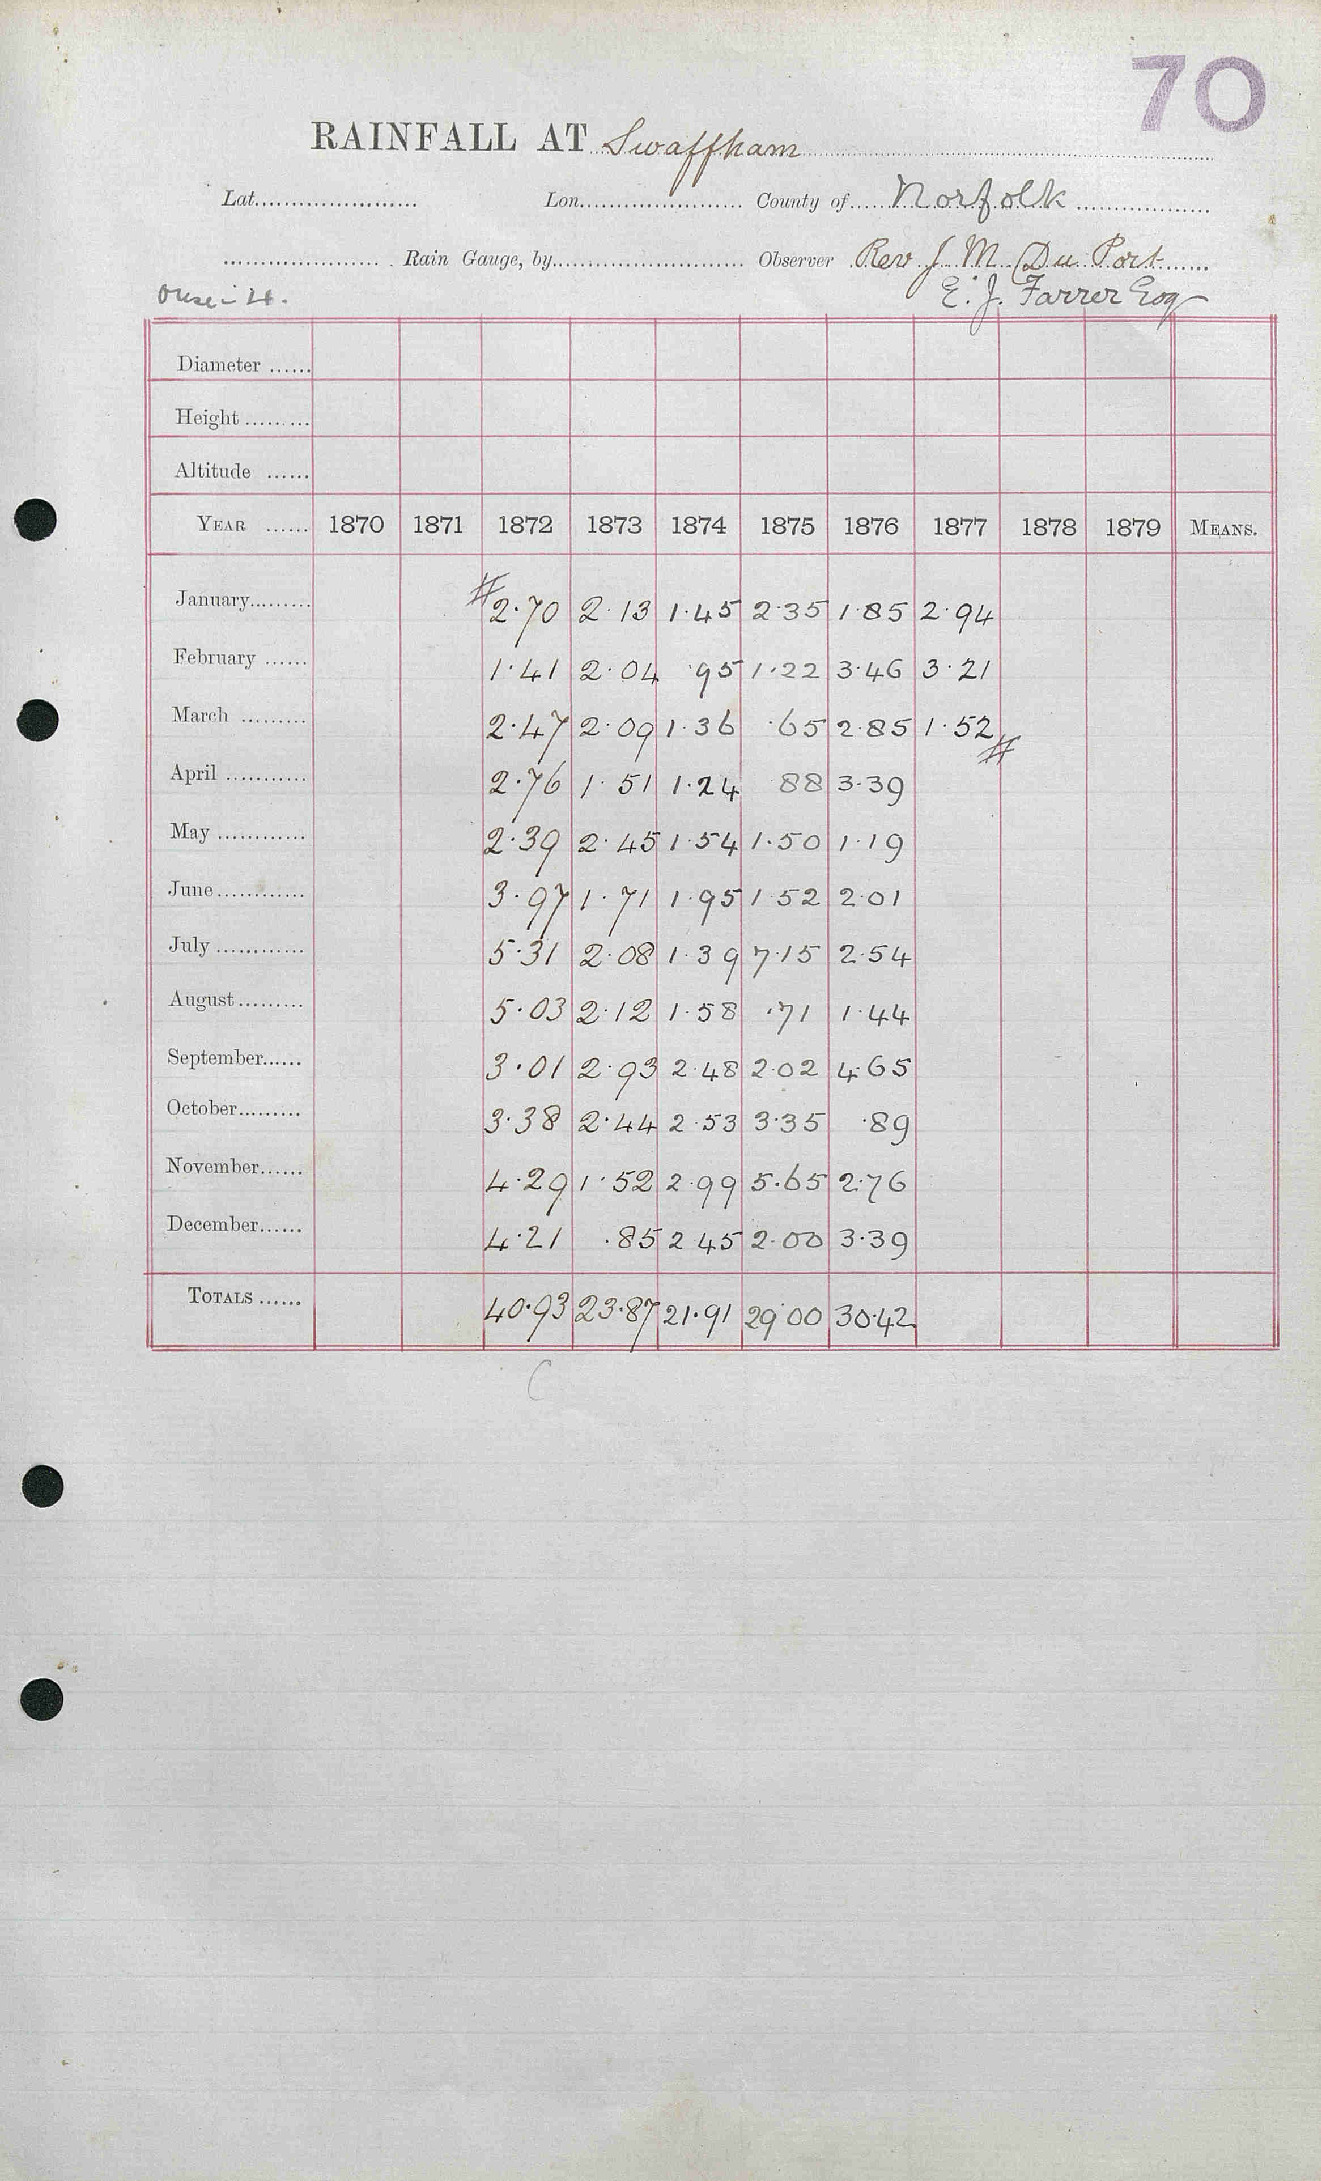 70
RAINFALL AT Swaffham
Lat. Lon. County of Norfolk
Rain Gauge, by Observer Rev J M Du Port
Ouse - 24. E. J. Farrer Esq
Diameter
Height
Altitude
YEAR 1870 1871 1872 1873 1874 1875 1876 1877 1878 1879 MEANS.
January # 2.70 2.13 1.45 2.35 1.85 2.94
February 1.41 2.04 .95 1.22 3.46 3.21
March 2.47 2.09 1.36 .65 2.85 1.52 #
April 2.76 1.51 1.24 88 3.39
May 2.39 2.45 1.54 1.50 1.19
June 3.97 1.71 1.95 1.52 2.01
July 5.31 2.08 1.39 7.15 2.54
August 5.03 2.12 1.58 .71 1.44
September 3.01 2.93 2.48 2.02 4.65
October 3.38 2.44 2.53 3.35 .89
November 4.29 1.52 2.99 5.65 2.76
December 4.21 .85 2 45 2.00 3.39
TOTALS 40.93 23.87 21.91 29.00 30.42
C